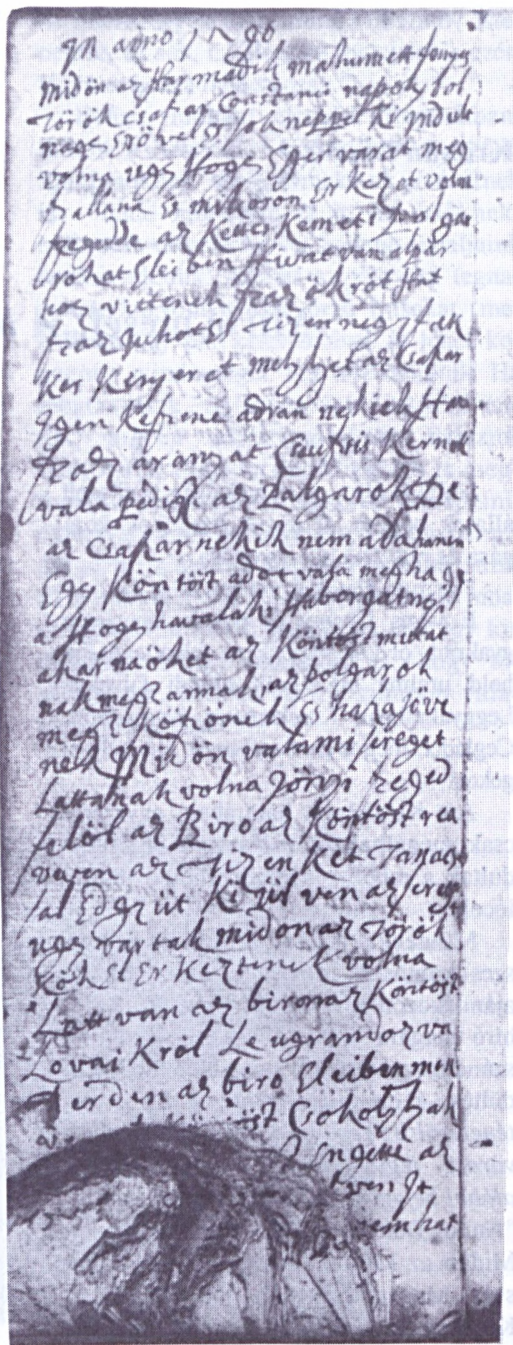 In anno 1596
midön az Harmadik mahumett fenyes
Török Csaszar Constanci napolybol
nagy Erövel és sok neppel ki indult
volna ugy Hogy Eger varat meg
szallana Es mikoron Er kezet volna
szegedde az Kecs Kemeti
birokat Eleiben Hivatvan
hoz vittenek szaz ökröt Hat
szaz juhot Es Tizen negy
Ker Kenyeret melyket az Csaszar
Igen adván nekiek
aranyat Kernek
vala pedig az Palgarok De
az Csaszar nekik nem ada hanem
Egy Köntöst adot vala meg hagy
a Hogy ha valaki Haborgatny
akarna öket az Köntöst mutat
nak meg annak, az polgarok
meg Kötiönek Es haza jöve
nek Midön valami sereget
Lattanak volna Jönni szeged
felöl az Biro az Köntöst rea
veven az Tizen Ket Tanacs
sal Edgyüt Ki jül ven az sereget
ugy vartak midon az Török
kök El Er Keztenek volna
Latt van az biron az Köntöst
Lovai Kröl Le ugrandoz va
az biro Eleiben men
Csokolyak
az
ven It
nem hat